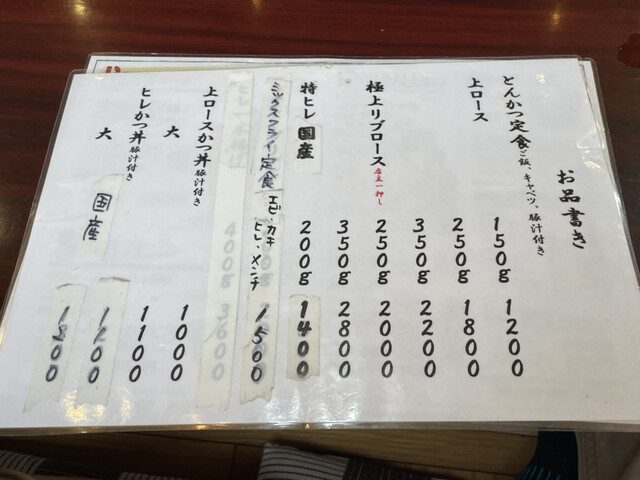 お品書き
とんかつ定食 ご飯、キャベツ、豚汁付き
上ロース 150g 1200
250g 1800
350g 2200
極上リブロース 店主一押し 250g 2000
350g 2800
特ヒレ 国産 200g 1400
ミックスフライ定食 エビ、カキ ヒレ、メンチ 1500
400g 3600
上ロースかつ丼 豚汁付き 1000
大 1100
ヒレかつ丼 豚汁付き 国産 1200
大